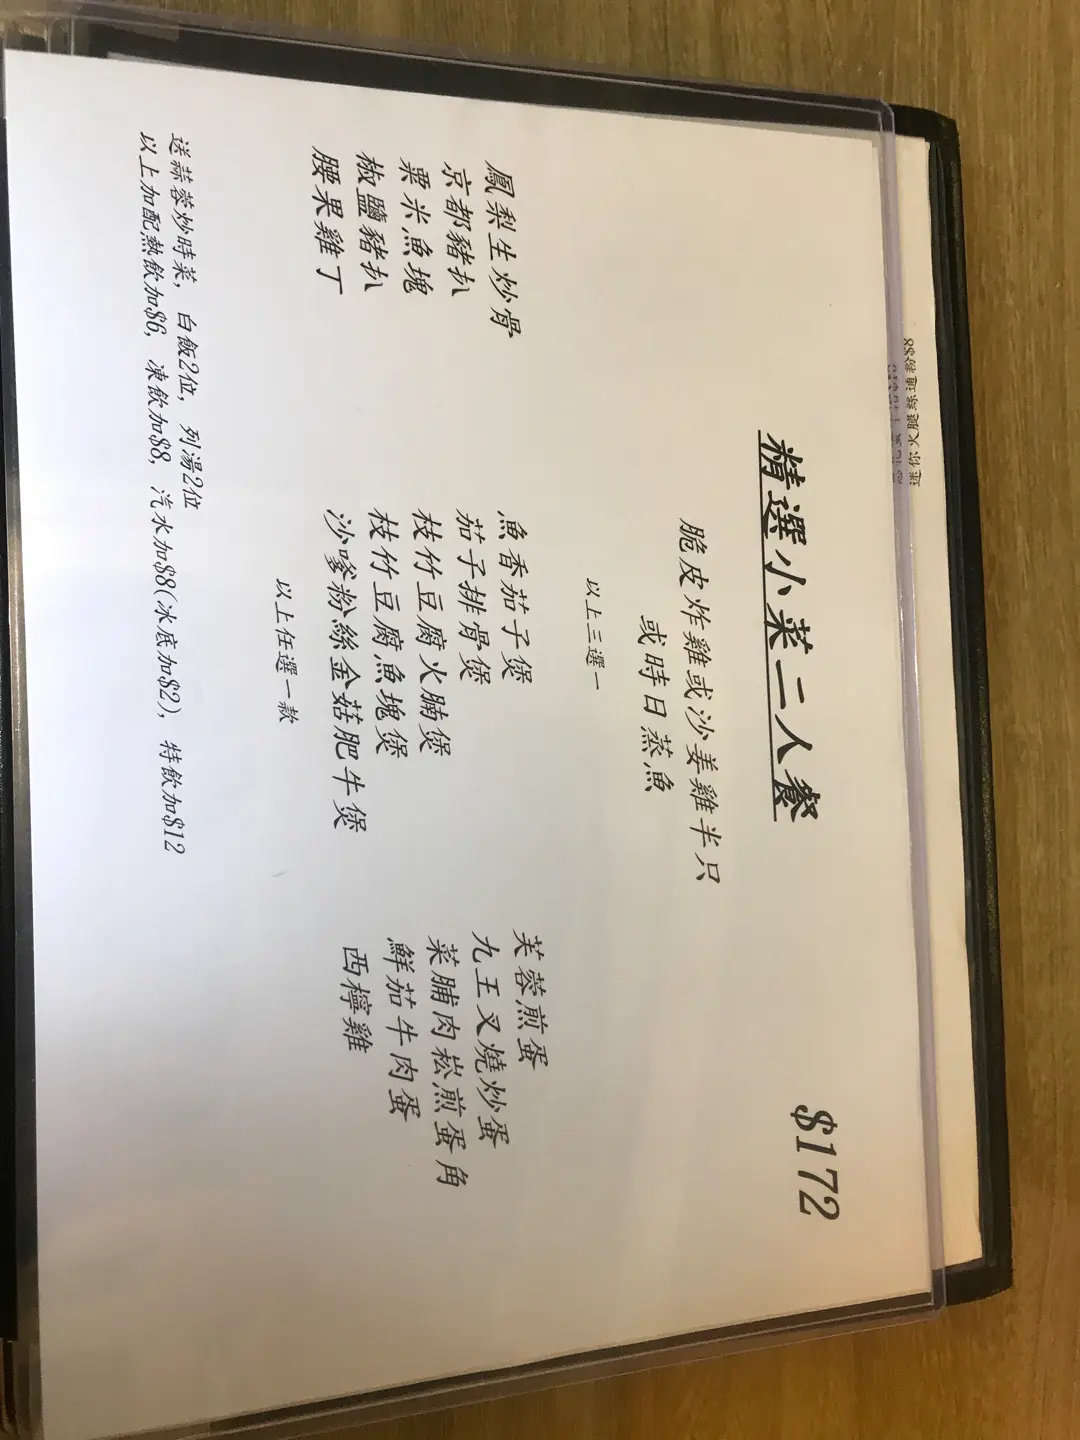 精選小菜二人餐
$172
脆皮炸雞或沙姜雞半只
或時日蒸魚
以上三選一
鳳梨生炒骨
京都豬扒
粟米魚塊
椒鹽豬扒
腰果雞丁
魚香茄子煲
茄子排骨煲
枝竹豆腐火腩煲
枝竹豆腐魚塊煲
沙嗲粉絲金菇肥牛煲
芙蓉煎蛋
九王叉燒炒蛋
菜脯肉崧煎蛋角
鮮茄牛肉蛋
西檸雞
以上任選一款
送蒜蓉炒時菜, 白飯2位, 列湯2位
以上加配熱飲加$6, 凍飲加$8, 汽水加$8(冰底加$2), 特飲加$12
迷你火腿絲通粉$8